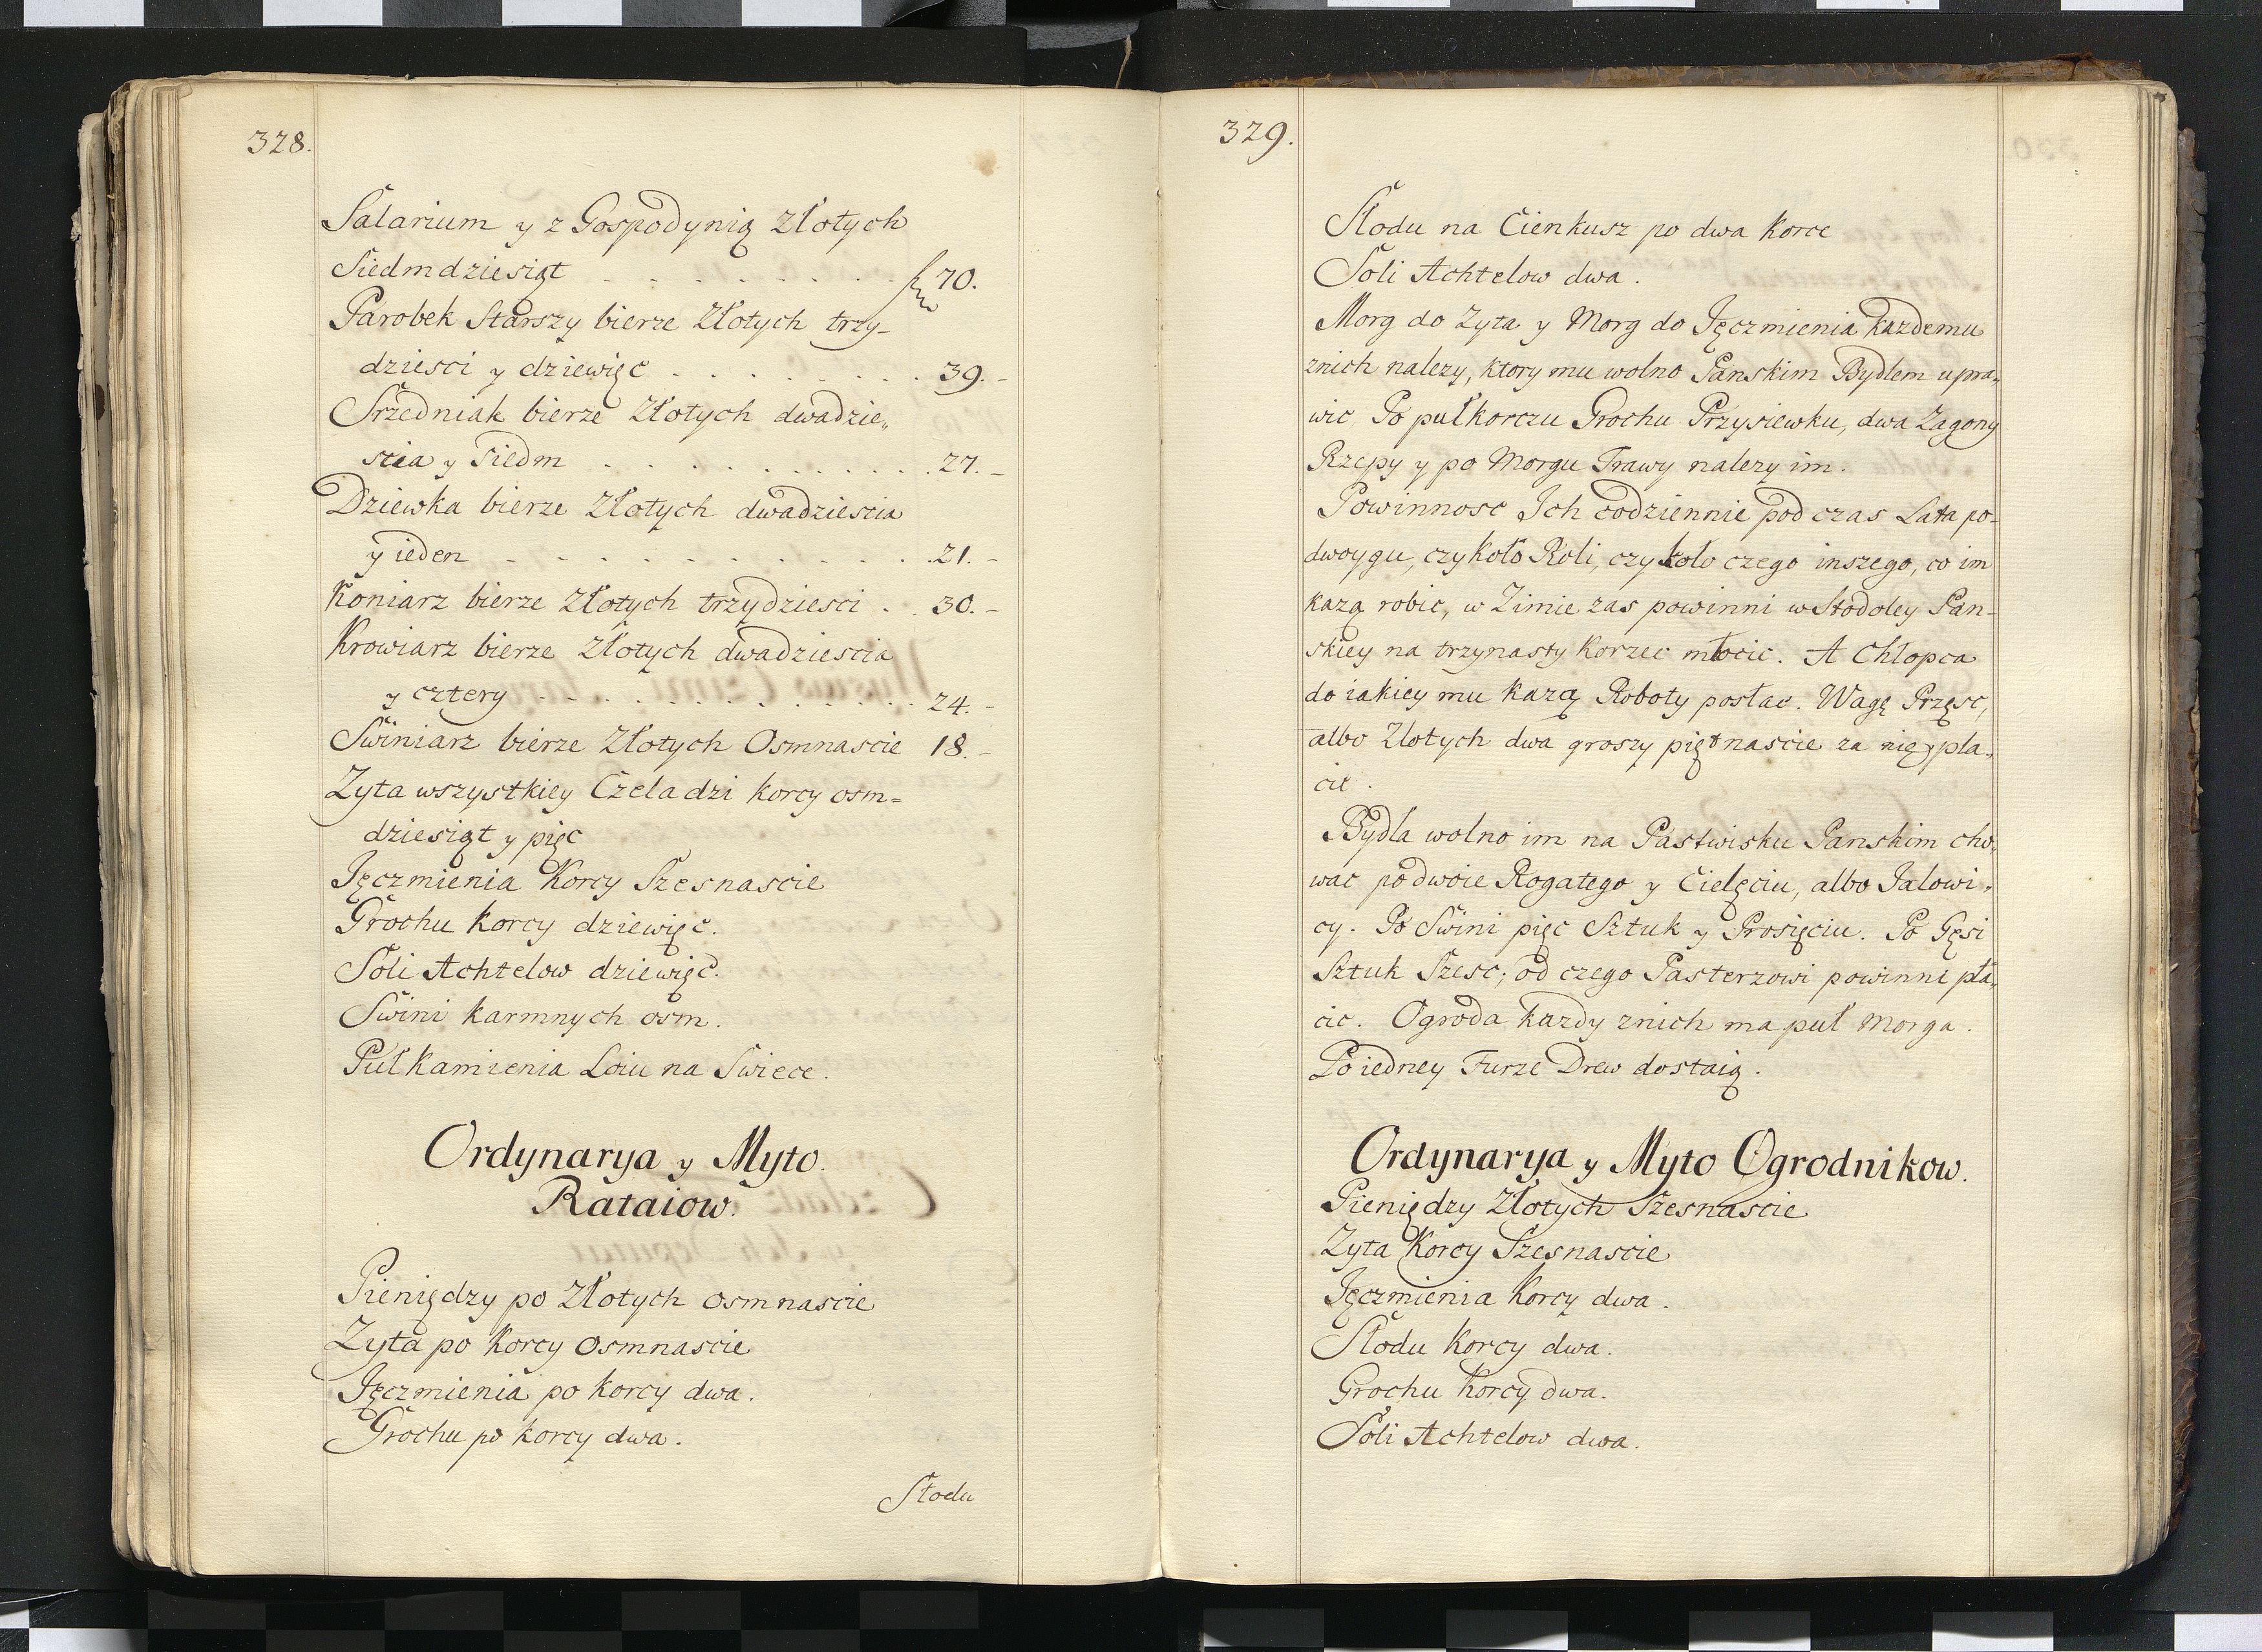 328.
Salarium y z Gospodynią Złotych
Siedmdziesiąt . . . . . . . 70.
Parobek Starszy bierze Złotych trzy-
dziesci y dziewięc . . . . . . . . . 39. -
Srzedniak bierze Złotych dwadzie„
scia y Siedm . . . . . . . . . . . 27. -
Dziewka bierze Złotych dwadziescia
y ieden - - - - - - - - - - . 21. -
Koniarz bierze Złotych trzydziesci . . 30. -
Krowiarz bierze Złotych dwadziescia
y cztery . . . . . . . . . . . . 24. -
Swiniarz bierze Złotych Osmnascie 18. -
Zyta wszystkiey Czeladzi korcy osm=
dziesiąt y pięc
Jęczmienia Korcy Szesnascie
Grochu korcy dziewięc.
Soli Achtelow dziewięc.
Swini karmnych osm.
Puł Kamienia Loiu na Swiece.
Ordynarya y Myto
Rataiow.
Pieniędzy po Złotych osmnascie
Zyta po Korcy Osmnascie
Jęczmienia po korcy dwa.
Grochu po korcy dwa.
Słodu
329.
Słodu na Cienkusz po dwa korce
Soli Achtelow dwa.
Morg do Zyta y Morg do Jęczmienia każdemu
znich nalezy, ktory mu wolno Panskim Bydlem upra„
wic Po pułkorczu Grochu Przysiewku, dwa Zagony
Rzepy y po Morgu Trawy nalezy im.
Powinnosc Ich codziennie pod czas Lata po-
dwoygu, czy koło Roli, czy koło czego inszego, co im
kazą robic, w Zimie zas powinni w Stodoley Pan-
skiey na trzynasty Korzec młocic. A Chłopca
do iakiey mu kazą Roboty posłac. Wagę Prząsc,
albo Złotych dwa groszy piętnascie za nię pła„
cic.
Bydla wolno im na Pastwisku Panskim cho„
wac po dwoie Rogatego y Cielęciu, albo Jalowi„
cy. Po Swini pięc Sztuk y Prosięciu. Po Gęsi
Sztuk Szesc; od czego Pasterzowi powinni pła„
cic. Ogroda kazdy znich ma puł Morga.
Po iedney Furze Drew dostaią.
Ordynarya y Myto Ogrodnikow.
Pieniędzy Złotych Szesnascie
Zyta Korcy Szesnascie
Jęczmienia Korcy dwa.
Słodu Korcy dwa.
Grochu Korcy dwa.
Soli Achtelow dwa.